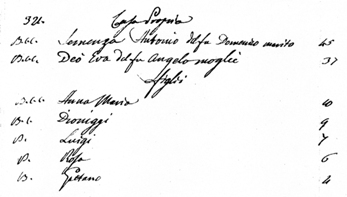 321. Casa Propria
B.b.c. Semenza Antonio del fu Domenico marito 45
B.b.c. Deò Eva del fu Angelo moglie 37
Figlj
B.b.b. Anna Maria 10
B.b. Dioniggi 9
B. Luigi 7
B. Rosa 6
B. Gaetano 4